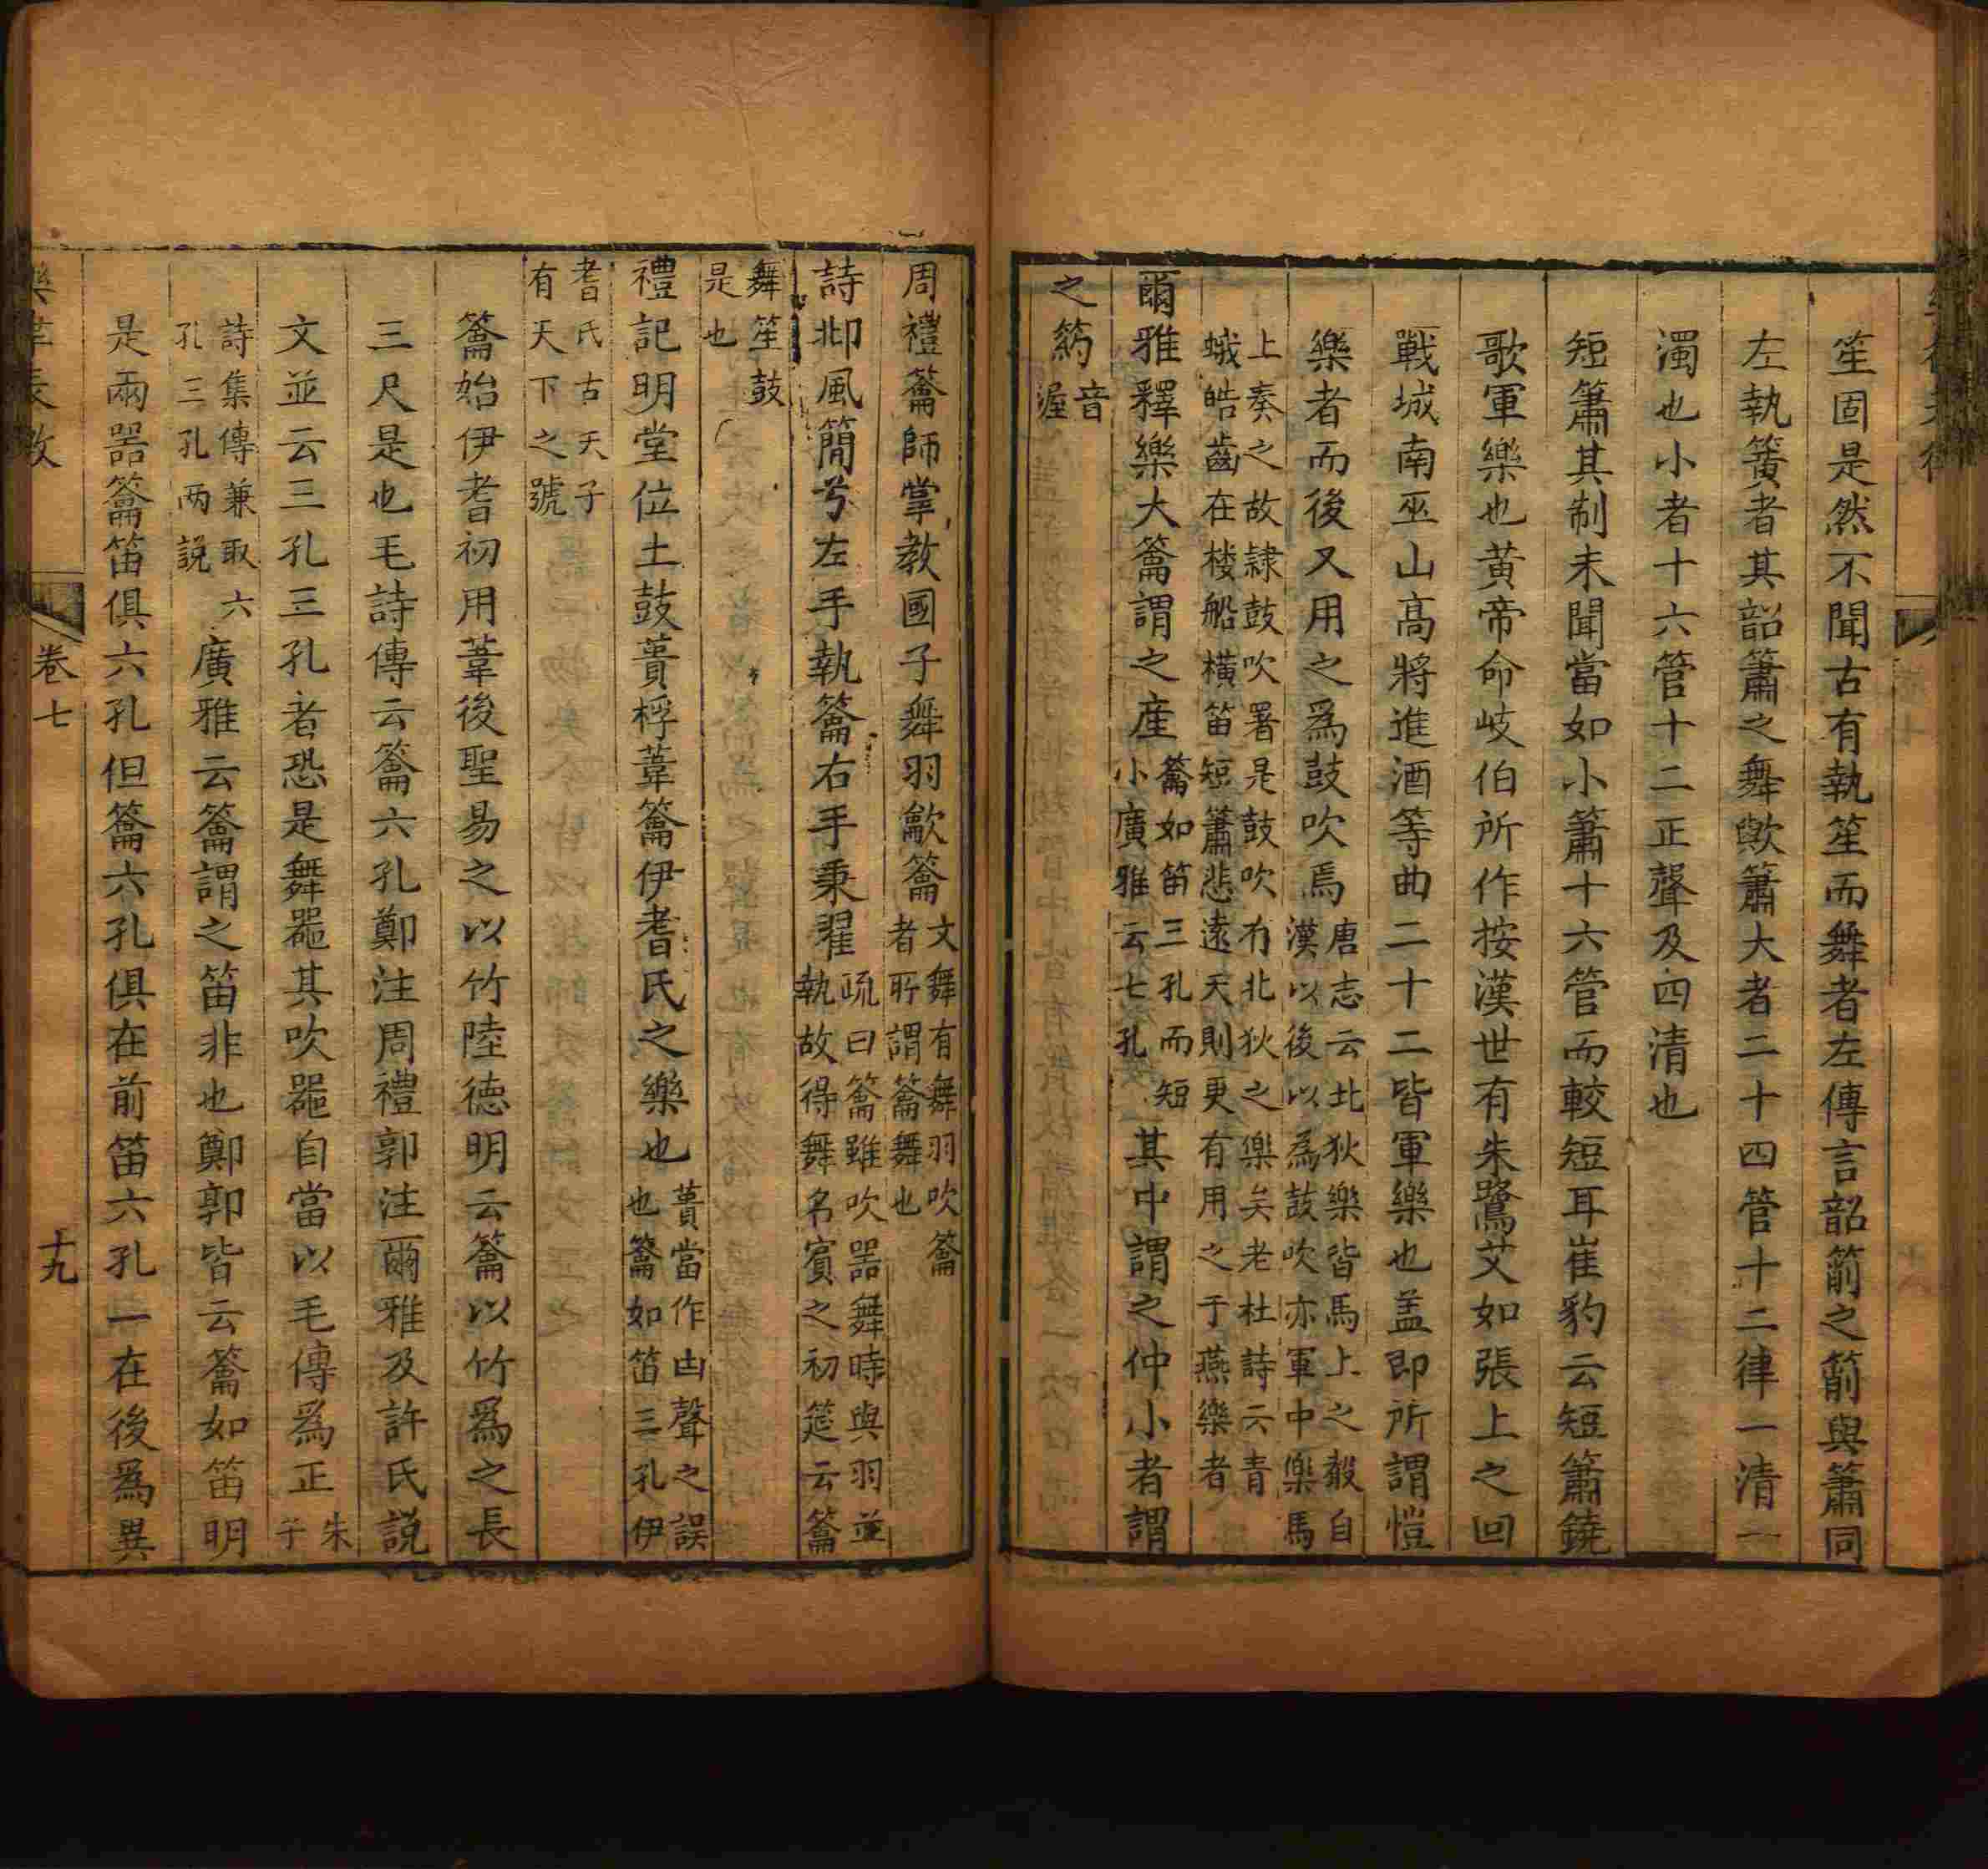 笙固是然不聞古有執笙而舞者左傳言韶箾之箾與簫同
左執簧者其韶簫之舞歟簫大者二十四管十二律一清一
濁也小者十六管十二正聲及四清也
短簫其制未聞當如小簫十六管而較短耳崔豹云短簫鐃
歌軍樂也黄帝命岐伯所作按漢世有朱鷺艾如張上之回
戰城南巫山高將進酒等曲二十二皆軍樂也盖即所謂愷
樂者而後又用之爲鼓吹焉唐志云北狄樂皆馬上之聲自漢以後以爲鼓吹亦軍中樂馬
上奏之故隷鼓吹署是鼓吹有北狄之樂矣老杜詩云青蛾皓齒在楼船橫笛短簫悲遠天則更有用之于燕樂者
爾雅釋樂大籥謂之産籥如笛三孔而短小廣雅云七孔其中謂之仲小者謂
之箹音渥
周禮籥師掌教國子舞羽龡籥文舞有舞羽吹籥者所謂籥舞也
詩邶風簡兮左手執籥右手秉翟疏曰籥雖吹器舞時與羽並執故得舞名賓之初筵云籥
舞笙鼓是也
禮記明堂位土鼓蕢桴葦籥伊耆氏之樂也蕢當作凷聲之誤也籥如笛三孔伊
耆氏古天子有天下之號
籥始伊耆初用葦後聖易之以竹陸德明云籥以竹爲之長
三尺是也毛詩傳云籥六孔鄭注周禮郭注爾雅及許氏説
文並云三孔三孔者恐是舞器其吹器自當以毛傳爲正朱子
詩集傳兼取六孔三孔两説廣雅云籥謂之笛非也鄭郭皆云籥如笛明
是兩器籥笛俱六孔但籥六孔俱在前笛六孔一在後爲異
卷七
十九